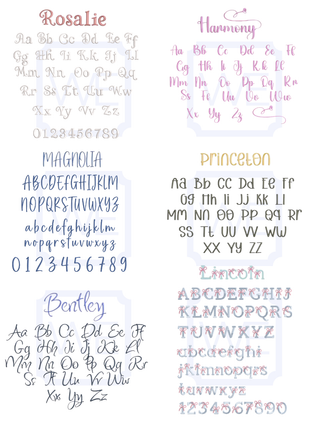 Rosalie
Aa Bb Cc Dd Ee Ff
Gg Hh Ii Jj Kk Ll
Mm Nn Oo Pp Qq
Rr Ss Tt Uu Vv Ww
Xx Yy Vv Zz
0123456789
Harmony
Aa Bb Cc Dd Ee Ff
Gg Hh Ii Jj Kk Ll
Mm Nn Oo Pp Qq Rr
Ss Tt Uu Vv Ww
Xx Yy Zz
MAGNOLIA
ABCDEFGHIJKLM
NOPQRSTUVWXYZ
abcdefghijklm
nopqrstuvwxyz
0123456789
Princeton
Aa Bb Cc Dd Ee Ff
Gg Hh Ii Jj Kk Ll
Mm Nn Oo Pp Qq Rr
Ss Tt Uu Vv Ww
Xx Yy Zz
Bentley
Aa Bb Cc Dd Ee Ff
Gg Hh Ii Jj Kk Ll
Mm Nn Oo Pp Qq Rr
Ss Tt Uu Vv Ww
Xx Yy Zz
Lincoln
ABCDEFGHIJ
KLMNOPQRS
TUVWXYZ
abcdefghi
jklmnopqrs
tuvwxyz
1234567890